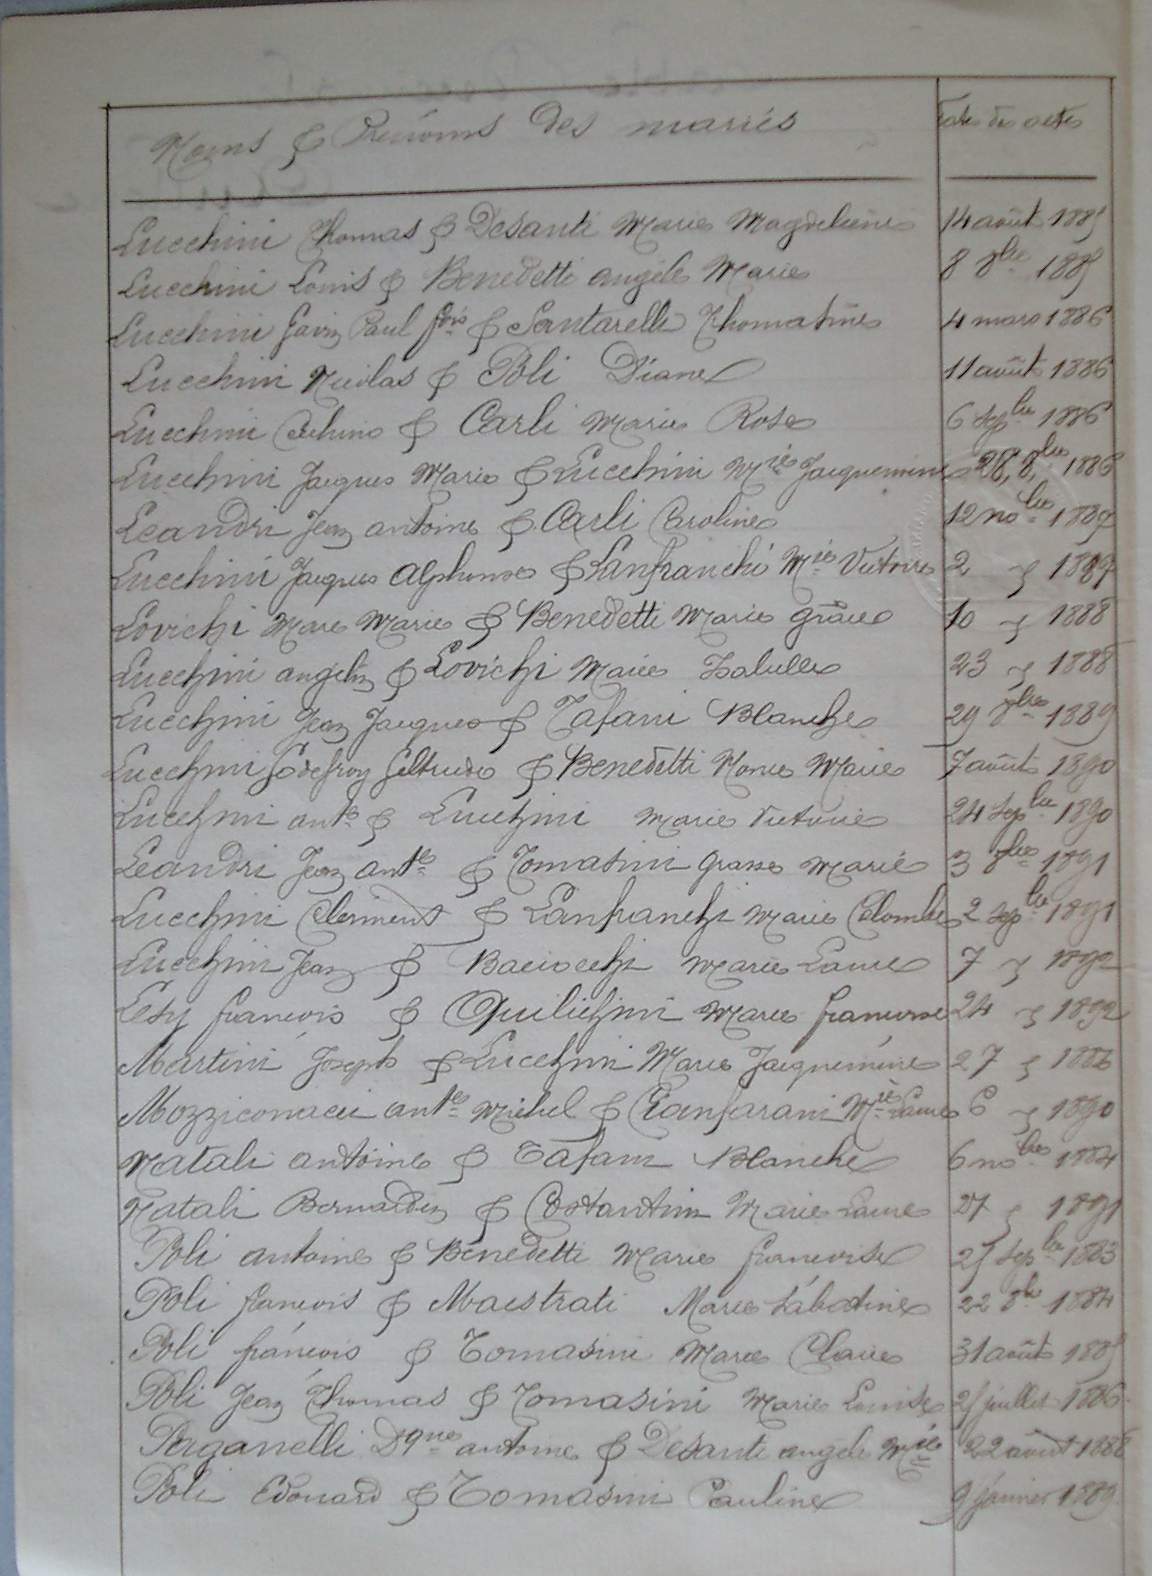 Noms & Prénoms des mariés Date des actes
Lucchini Thomas & Desanti Marie Magdeleine 14 août 1885
Lucchini Louis & Benedetti angèle Marie 8 8bre 1885
Lucchini Paul fois & Santarelli Thomasine 4 mars 1886
Lucchini Nicolas & Poli Diane 11 août 1886
Lucchini & Carli Marie Rose 6 Sepbre 1886
Lucchini Jacques Marie & Lucchini Mie Jacquemine 28, 8bre 1886
Leandri Jean antoine & Carli Caroline 12 nobre 1887
Lucchini Jacques Alphonse & Lanfranchi Mie Victoire 2 " 1887
Lovichi Marc Marie & Benedetti Marie grâce 10 " 1888
Lucchini angelin & Lovichi Marie Isabelle 23 " 1888
Lucchini Jean Jacques & Tafani Blanche 29 8bre 1889
Lucchini Godefroy & Benedetti Marie 7 août 1890
Lucchini ante & Lucchini Marie Victoire 24 Sepbre 1890
Leandri Jean ante & Tomasini Marie 3 8bre 1891
Lucchini Clément & Lanfranchi Marie Colombe 2 Sepbre 1891
Lucchini Jean & Baciocchi Marie Laure 7 " 1892
françois & Quilichini Marie françoise 24 " 1892
Martini Joseph & Lucchini Marie Jacquemine 27 " 1886
Mozziconacci ante Michel & Cianfarani Mie Laure 6 " 1890
Natali antoine & Tafani Blanche 6 nobre 1884
Natali Bernardin & Costantini Marie Laure 27 " 1891
Poli antoine & Benedetti Marie françoise 25 Sepbre 1883
Poli françois & Maestrati Marie Sabatine 22 8bre 1884
Poli françois & Tomasini Marie Claire 31 août 1885
Poli Jean Thomas & Tomasini Marie Louise 25 juillet 1886
Parganelli Dque antoine & Desanti angèle Mie 22 août 1888
Poli Edouard & Tomasini Pauline 9 janvier 1889